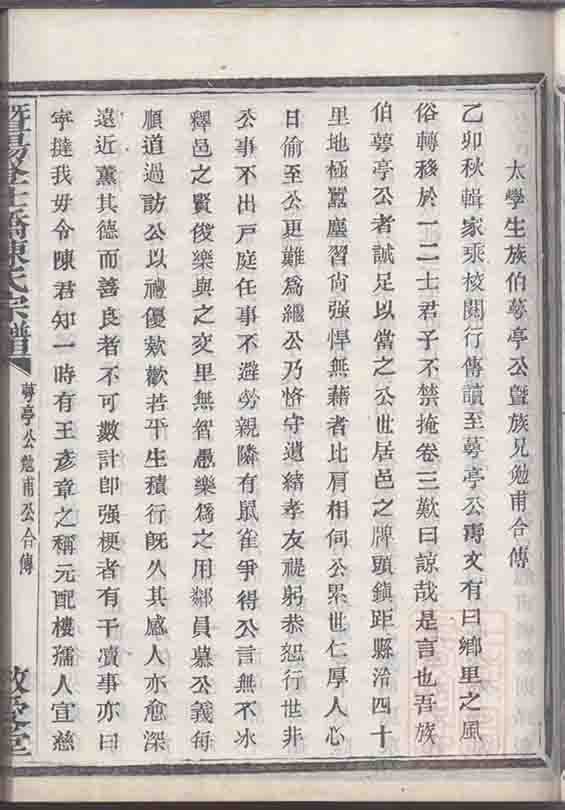 太學生族伯蕚亭公暨族兄勉甫合傳
乙卯秋輯家乘校閱行傳讀至蕚亭公專文有曰鄉里之風
俗轉移於一二士君子不禁掩卷三歎曰諒哉是言也吾族
伯蕚亭公者誠足以當之公世居邑之牌頭鎮距縣治四十
里地極囂塵習尙强悍無藉者比肩相伺公累世仁厚人心
日偷至公更難爲繼公乃恪守遺緒孝友禔躬恭恕行世非
公事不出戸庭任事不避勞親隣有鼠雀爭得公言無不冰
釋邑之賢俊樂與之交里無智愚樂爲之用鄰員慕公義每
順道過訪公以禮優欵歡若平生積行旣久其感人亦愈深
遠近薰其德而善良者不可數計卽强梗者有干瀆事亦曰
寕撻我毋令陳君知一時有王彥章之稱元配樓孺人宜慈
暨昜 陳氏宗譜
蕚亭公勉甫公合傳